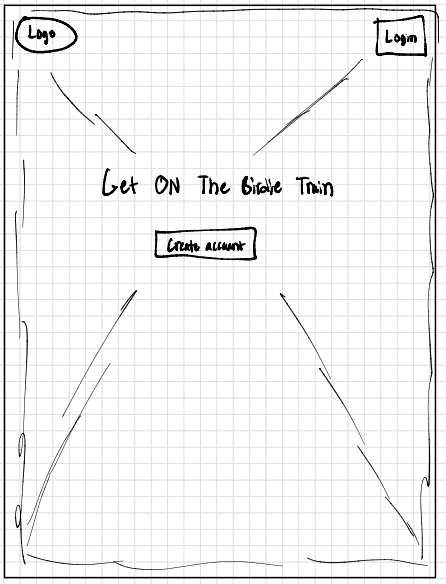 Logo
Login
Get ON The Birdie Train
Create account